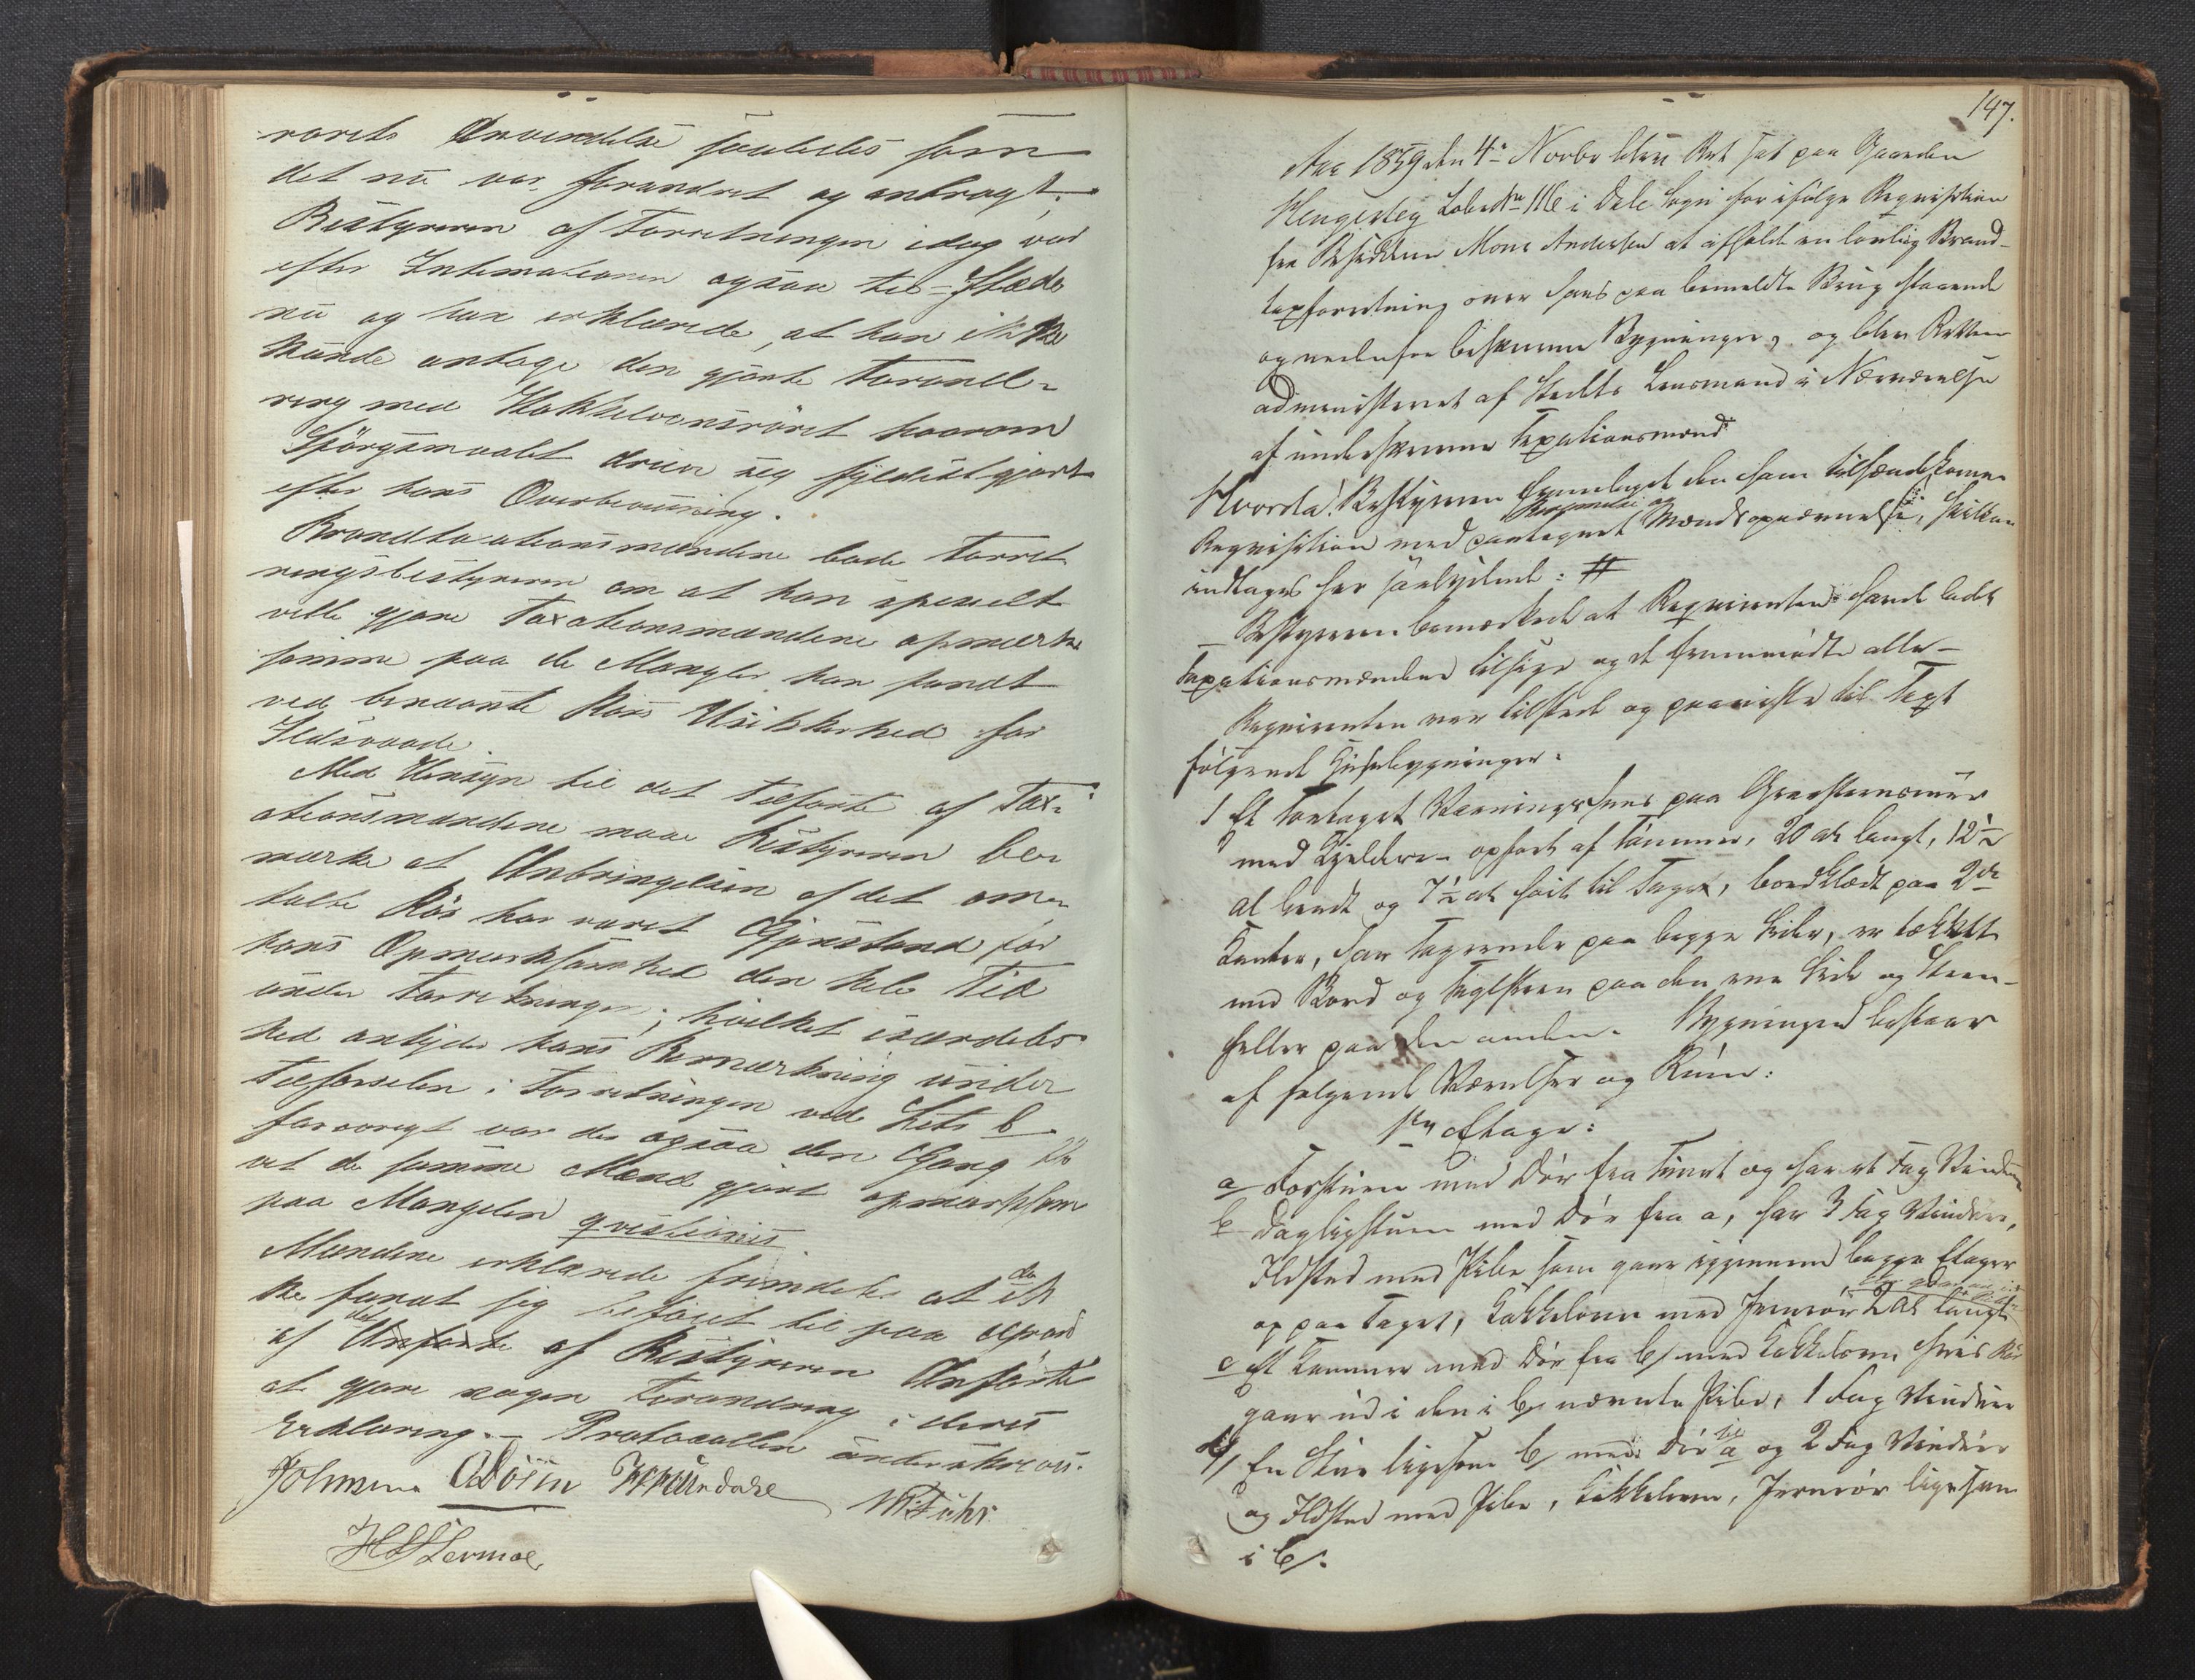 rørets Anvendelse saaledes som
det nu var forandret og anbragt.
Bestyreren af Forretningen idag var
efter Intimationen ogsaa til-Stæde
nu og han erklærede, at han ikke
kunde antage den gjorte Forand-
ring med Kakkelovnsrøret hvorom
Spörgsmaalet dreier sig fyldestgjort
efter hans Overbeviisning.
Brandtaxationsmændene bade Forret
ningsbestyreren om at han specielt
vilde gjøre Taxationsmændene opmærk
somme paa de Mangler han fandt
ved benævnte Rørs Usikkerhed for
Ildsvaade.
Med Hensyn til det Tilførte af Tax-
ationsmændene maa Bestyreren be-
mærke at Anbringelsen af det om-
talte Rör har været Gjenstand for
hans Opmærksomhed den hele Tid
under Forretningen; hvilket isærdeles-
hed antyder hans Bemærkning under
Tilførselen i Forretningen ved Litr b
forøvrigt var der ogsaa den Gang
af de samme Mænd gjort opmærksom
paa Mangelen qvæstionis
Mændene erklærede fremdeles at de ik
ke fandt sig beføiet til paa Grund
af det Anførte af Bestyreren Anførte
at gjøre nogen Forandring i deres
Erklæring. – Protocollen underskreven.
Johnsen CDöin
HSLermoe

147.
Aar 1859 den 4de Novbr blev Ret sat paa Gaarden
Hengesteg Løbe No 116 i Dale Sogn for ifølge Reqvisition
fra Besidderen Mons Andersen at afholde en lovlig Brand-
taxtforretning over hans paa bemeldte Brug staaende
og nedenfor beskrevne Bygninger, og blev Retten
administreret af Stedets Lensmand i Nærværelse
af underskrevne Taxationsmænd
Hvorda! Bestyreren fremlagde den ham tilhændekomne
Reqvisition med paategnet Berammelse og Mændsopnævnelse, hvilken
indtages her saalydende: #
– Bestyreren bemærkede at Reqvirenten havde ladet
Taxationsmændene tilsige og de fremmødte alle –
Reqvirenten var tilstede og paaviste til Taxt
følgende Huusbygninger:
1 Et toetages Vaaningshuus paa Graasteensmuur
med Kjelder – opført af Tømmer, 20 al langt, 12½
al bredt og 7½ al høit til Taget, bordklædt paa 2de
Kanter, har Tagrender paa begge Sider, er tækket
med Bord og Taglsteen paa den ene Side og Steen-
heller paa den anden. Bygningen bestaar
af følgende Værelser og Rum:
1ste Etage:
a Forstuen med Dör fra Tunet og har et Fag Vinduer
b Dagligstuen med Dör fra a, har 3 Fag Vinduer,
Ildsted med Pibe som gaar igjennem begge Etager
op paa Taget, Kakkelovn med Jernrör 2 al langt
c Et Kammer med Dör fra b/ med Kakkelovn hvis Rör
gaar ud i den i b/ nævnte Pibe, 1 Fag Vinduer
d/ En Stue ligesom b/ med Dör til a og 2 Fag Vinduer
og Ildsted med Pibe, Kakkelovn, Jernrör ligesom
i b/.